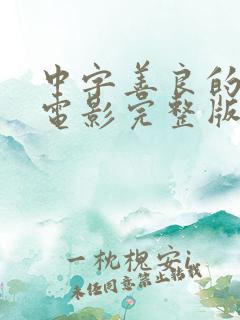 中字善良的
電影完整版
一枕槐安i
未经同意禁止转载